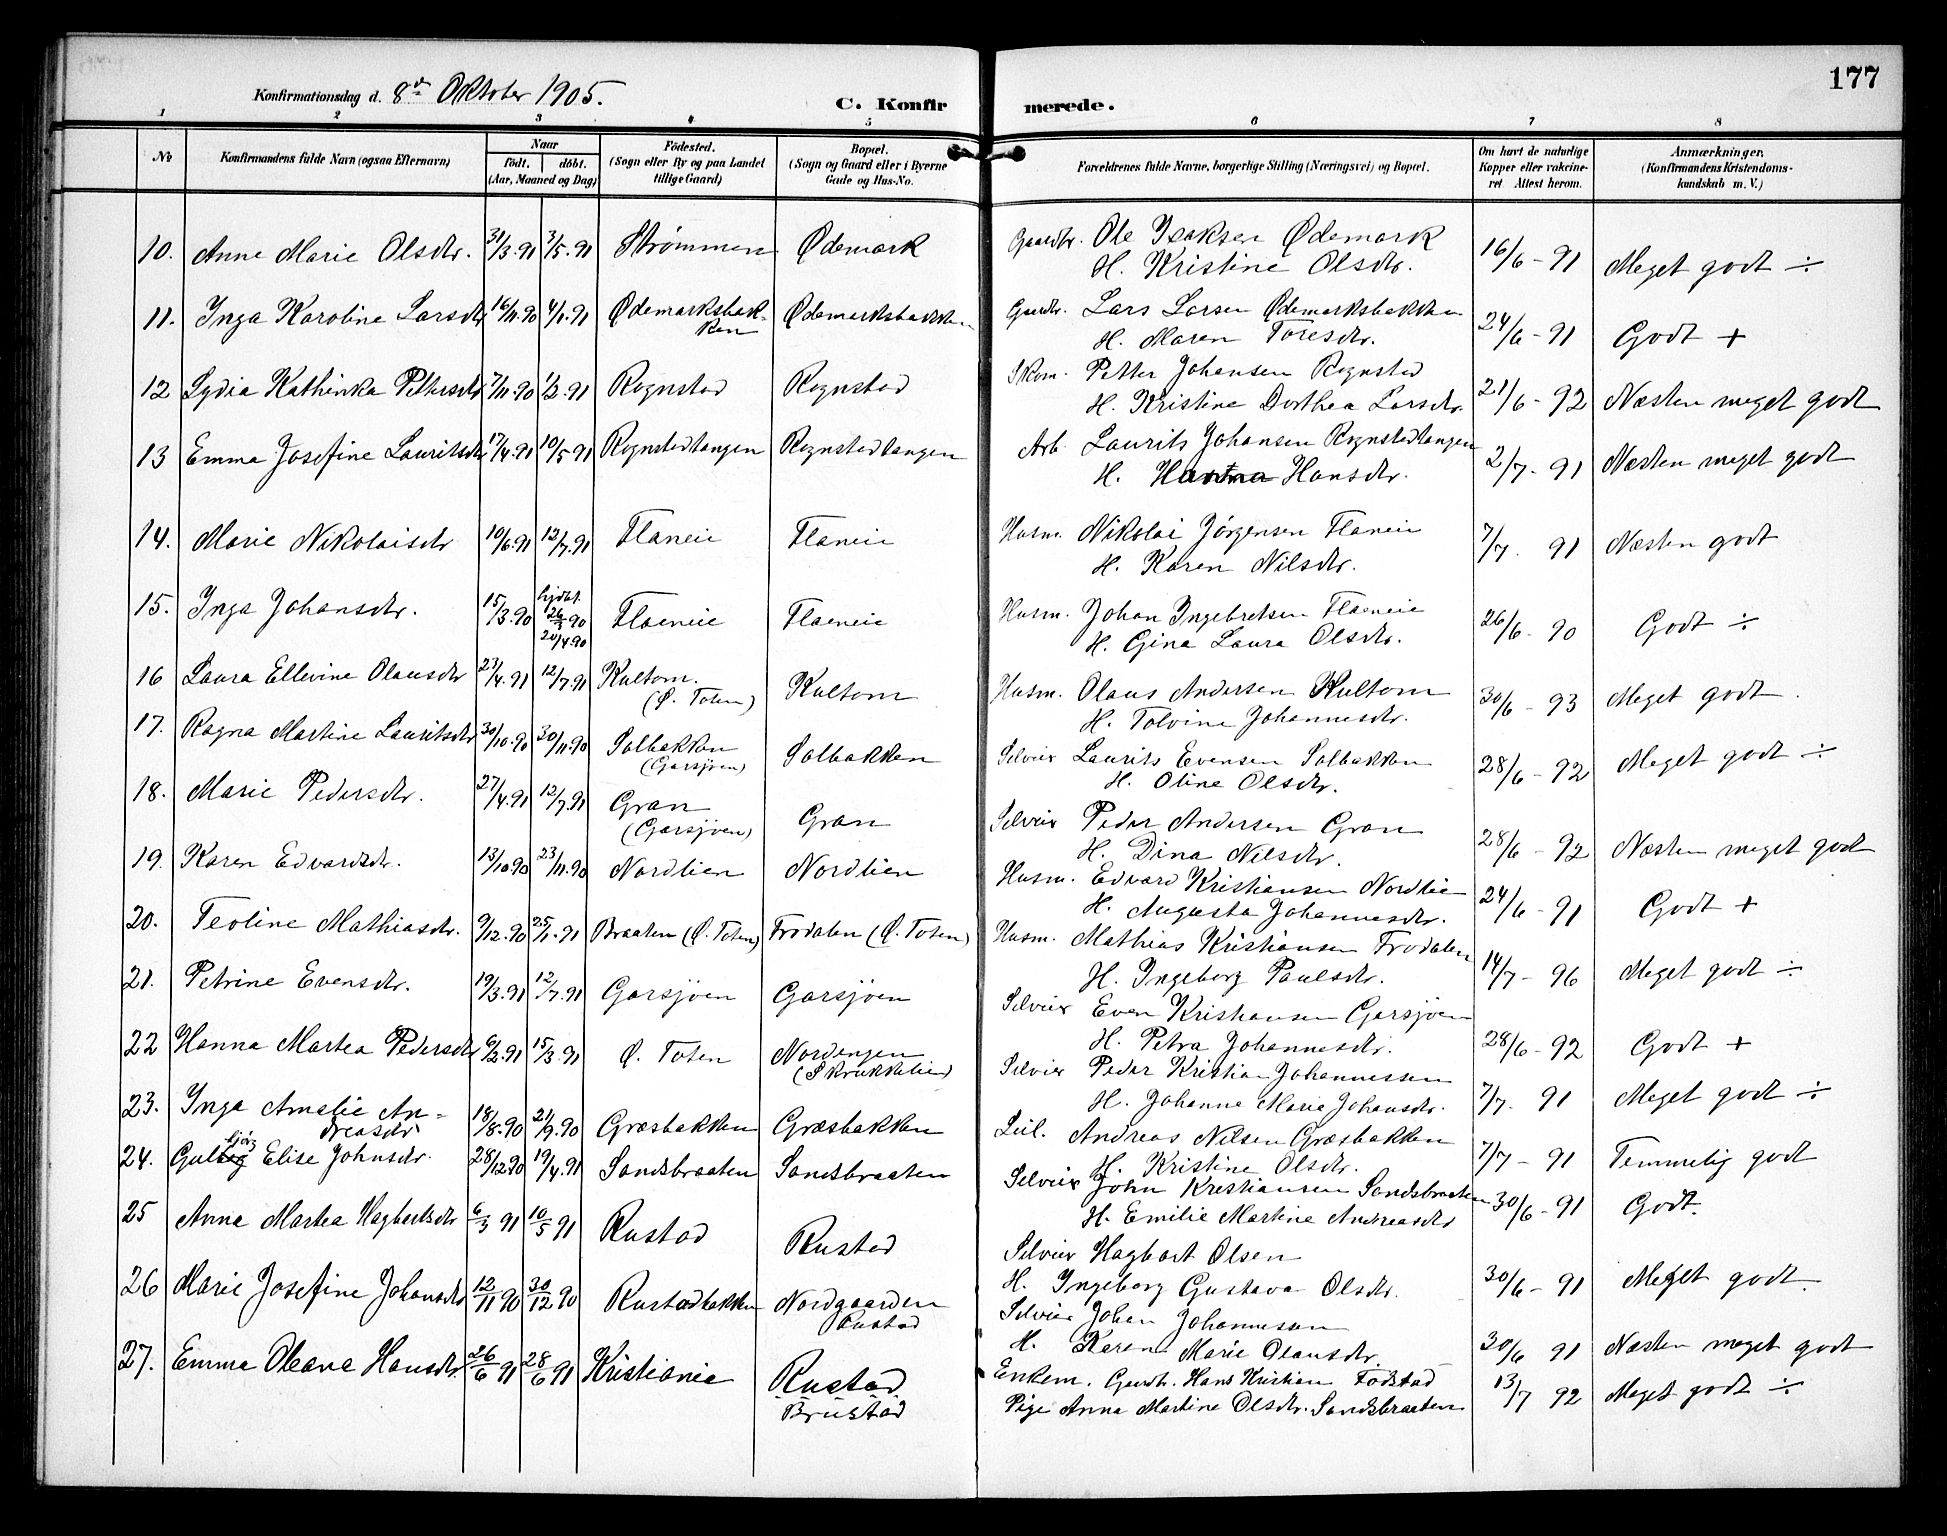 177
Konfirmationsdag d. 8de Oktober 1905.
C. Konfirmerede.
1 2 3 4 5 6 7 8
No
Konfirmandens fulde Navn (ogsaa Efternavn)
Naar
födt. döbt.
(Aar, Maaned og Dag)
Födested.
(Sogn eller By og paa Landet tillige Gaard)
Bopæl.
(Sogn og Gaard eller i Byerne Gade og Hus-No.
Forældrenes fulde Navne, borgerlige Stilling (Næringsvei) og Bopæl.
Om havt de naturlige Kopper eller vakcineret Attest herom.
Anmærkninger.
(Konfirmandens Kristendomskundskab m. V.)
10. Anne Marie Olsdtr. 31/3.91 3/5.91 Strømmen Ødemark Gaardbr. Ole Isaksen Ødemark 16/6-91 Meget godt ÷
H. Kristine Olsdtr.
11. Inga Karoline Larsdtr 16/11.90 4/1.91 Ødemarksbakken Ødemarksbakken Gaardbr. Lars Larsen Ødemarksbakken 24/6-91 Godt +
H. Maren Toresdtr.
12 Lydia Kathinka Pettersdtr 7/11.90 1/2.91 Rognstad Rognstad Skom. Petter Johansen Rognstad 21/6-92 Næsten meget godt
H. Kristine Dorthea Larsdtr.
13 Emma Josefine Lauritsdtr 17/4.91 10/5.91 Rognstadtangen Rognstadtangen Arb. Laurits Johansen Rognstadtangen 2/7-91 Næsten meget godt
H. Hansdtr.
14. Marie Nikolaisdtr 10/6.91 12/7.91 Flaneie Flaneie Husm. Nikolai Jörgensen Flaneie 7/7. 91 Næsten godt
H. Karen Nilsdtr.
15. Inga Johansdtr. 15/3.90 hjdbt. 26/3 90 20/4.90 Flaeneie Flaeneie Husm. Johan Ingebretsen Flaeneie 26/6-90 Godt ÷
H. Gina Laura Olsdtr.
16 Laura Ellevine Olausdtr 23/4.91 12/7.91 Kultom. (Ø. Toten) Kultom Husm. Olaus Andersen Kultom 30/6-93 Meget godt.
H. Tolvine Johannesdtr.
17. Ragna Martine Lauritsdtr 30/10.90 30/11.90 Solbakken (Garsjöen) Solbakken Selveier Laurits Evensen Solbakken 28/6-92 Meget godt ÷
H. Oline Olsdtr.
18. Marie Pedersdtr. 27/4.91 12/7.91 Gran (Garsjöen) Gran Selveier Peder Andersen Gran 28/6-92 Næsten meget godt
H. Dina Nilsdtr.
19. Karen Edvardsdtr. 13/10.90 23/11.90 Nordlien Nordlien Husm. Edvard Kristiansen Nordlie 24/6-91 Godt +
H. Augusta Johannesdtr.
20. Teoline Mathiasdtr. 9/12.90 25/1.91 Braaten (Ø. Toten) Frodalen (Ø. Toten) Husm. Mathias Kristiansen Frodalen 14/7-96 Meget godt ÷
H. Ingeborg Paulsdtr.
21. Petrine Evensdtr. 19/3.91 12/7.91 Garsjöen Garsjöen Selveier Even Kristiansen Garsjöen 28/6-92 Godt +
H. Petra Johannesdtr.
22 Hanna Martea Pedersdtr 6/2.91 15/3 91 Ø. Toten Nordengen (Skrukkelien) Selveier Peder Kristian Johannessen 7/7. 91 Meget godt ÷
H. Johanne Marie Johansdtr.
23. Inga Amalie Andreasdtr 18/8.90 21/9.90 Græsbakken Græsbakken Andreas Nilsen Græsbakken 7/7-91 Temmelig godt
H. Kristine Olsdtr.
24. Gulbjörg Elise Johnsdtr. 28/12 90 19/4.91 Sandsbraaten Sandsbraaten Selveier John Kristiansen Sandsbraaten 30/6-91 Godt.
H. Emilie Martine Andreasdtr
25 Anna Martea Hagbartsdtr 6/3 91 10/5 91 Rustad Rustad Selveier Hagbart Olsen 30/6-91 Meget godt
H. Ingeborg Gustava Olsdtr.
26 Marie Josefine Johansdtr 12/11 90 30/12 90 Rustadbakken Nordgaarden Rustad Selveier Johan Johannesen 30/6 91 Næsten meget godt
H. Karen Marie Olausdtr.
27. Emma Oleana Hansdtr. 26/6 91 28/6 91 Kristiania Rustad Brustad Enkem. Gaardbr. Hans Kristian Fodstad 13/7 92 Meget godt ÷
Pige Anna Martine Olsdtr. Sandsbraaten